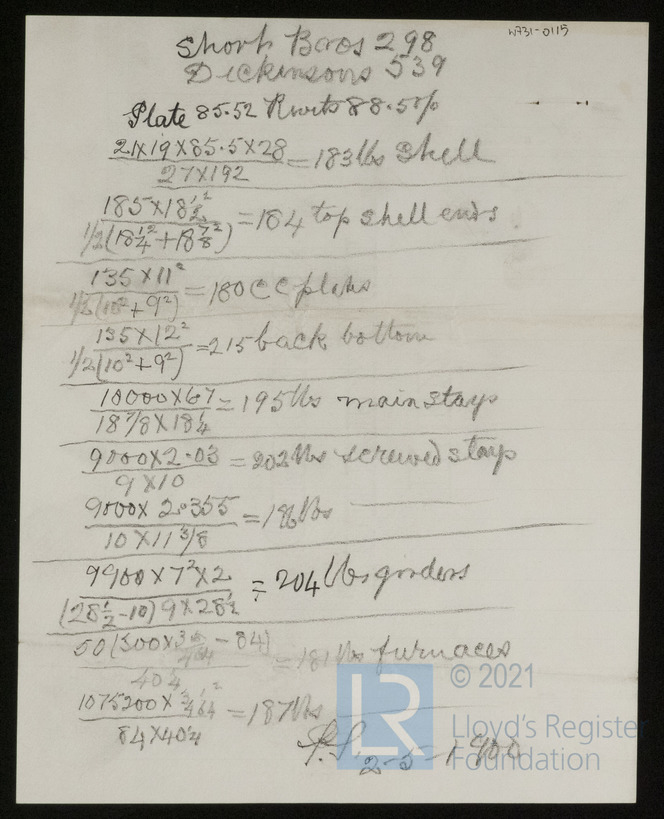 W731-0115
Short Bros 298
Dickinsons 539
Plate 85.52 Rivets 88.5%
21X19X85.5X28
27X192
=183lbs Shell
185X18½²
½(18¼²+18⅞²)
=184 top shell ends
135X11²
½(10²+9²)
=180 CC plates
135X12²
½(10²+9²)
=215 back bottom
10000X67
18 7/8X18¼
=195lbs main stays
9000X2.03
9X10
=202lbs screwed stays
9000X 2.355
10X11 3/8
=186lbs
9900X7²X2
(28½-10)9X28½
=204 lbs girders
50(300X - 84)
=181lbs furnaces
1075200X
84X40¼
=187lbs
2-5-1900
LR
© 2021
Lloyd's Register
Foundation